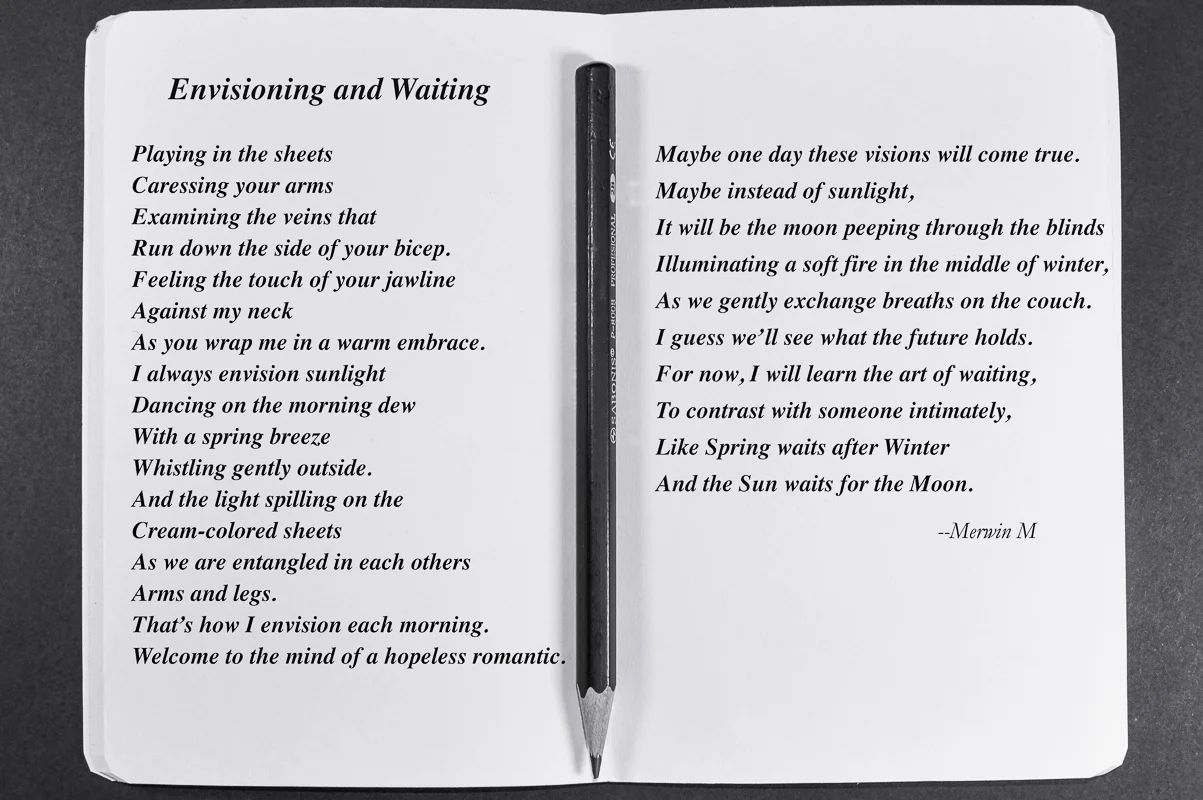 Envisioning and Waiting
Playing in the sheets
Caressing your arms
Examining the veins that
Run down the side of your bicep.
Feeling the touch of your jawline
Against my neck
As you wrap me in a warm embrace.
I always envision sunlight
Dancing on the morning dew
With a spring breeze
Whistling gently outside.
And the light spilling on the
Cream-colored sheets
As we are entangled in each others
Arms and legs.
That's how I envision each morning.
Welcome to the mind of a hopeless romantic.
SARONIS® P-8008 PROFESSIONAL 2B CE
Maybe one day these visions will come true.
Maybe instead of sunlight,
It will be the moon peeping through the blinds
Illuminating a soft fire in the middle of winter,
As we gently exchange breaths on the couch.
I guess we'll see what the future holds.
For now, I will learn the art of waiting,
To contrast with someone intimately,
Like Spring waits after Winter
And the Sun waits for the Moon.
--Merwin M